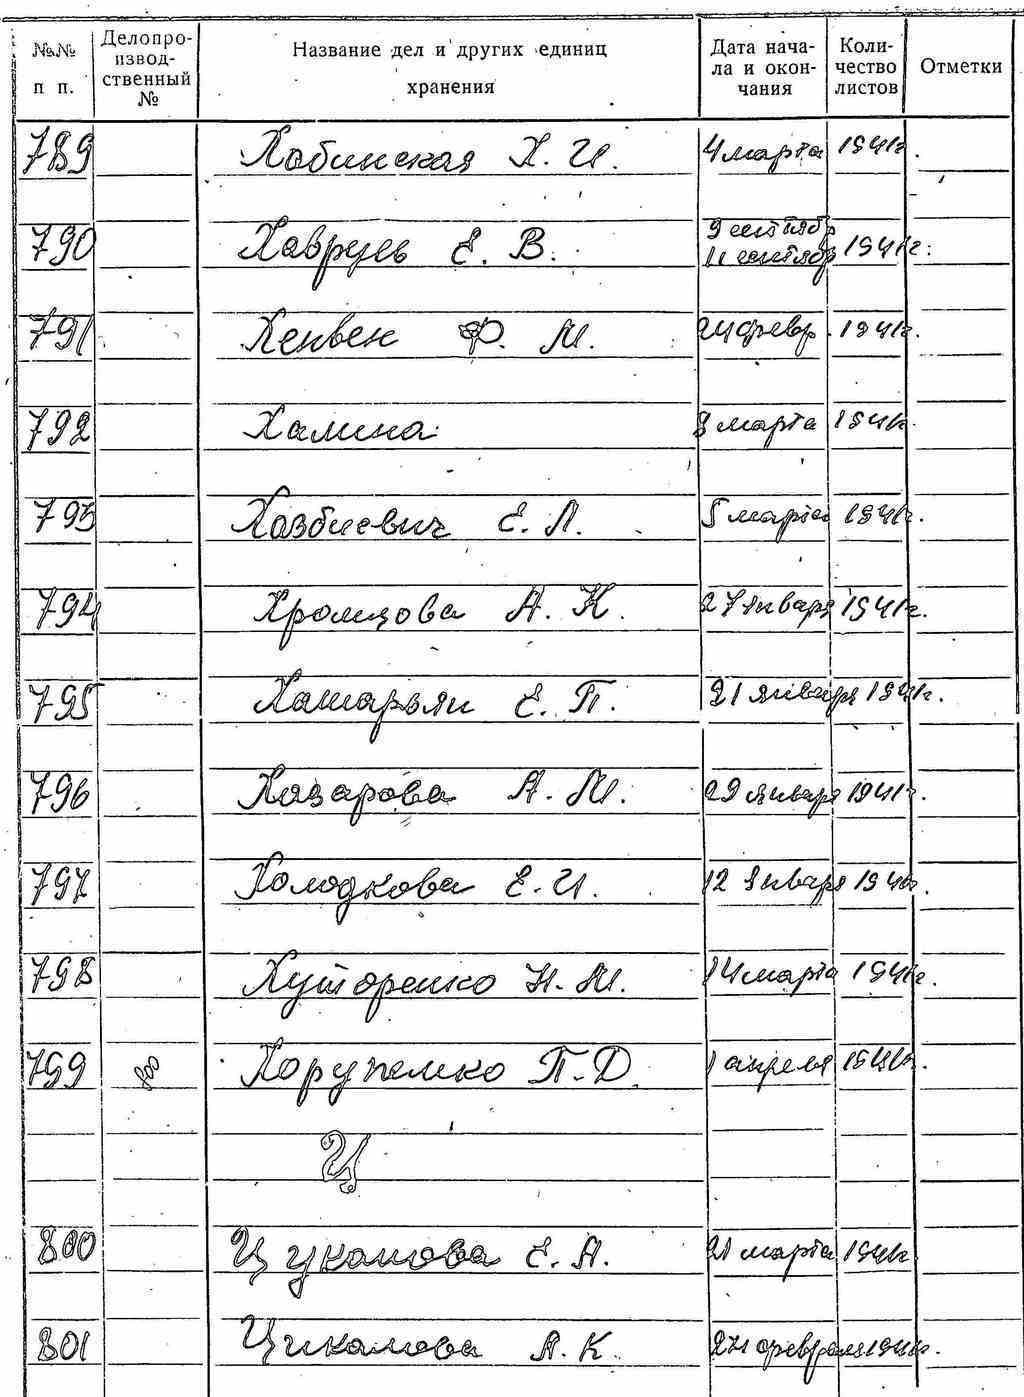 №№ п п.
Делопро-
извод-
ственный
№
Название дел и других единиц
хранения
Дата нача-
ла и окон-
чания
Коли-
чество
листов
Отметки
789 Хабинская Х. И. 4 марта 1941г.
790 Хаврусь Е. В. 9 сентябр
11 сентябр 1941г.
791 Ф. М. 24 февр. 1941г.
792 Халина 8 марта 1941г.
793 Хазбиевич Е. Л. 5 марта 1941г.
794 Хромцова А. К. 27 января 1941г.
795 Е. П. 21 января 1941г.
796 Хазарова А. М. 29 января 1941г.
797 Холодкова Е. И. 12 января 1941г.
798 Хуторенко Н. М. 14 марта 1941г.
799 800 П. Д. 1 апреля 1941г.
Ц
800 Е. А. 21 марта 1941г.
801 А. К. 24 февраля 1941г.